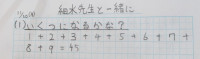 細水先生と一緒に
(1) いくつになるかな?
1 + 2 + 3 + 4 + 5 + 6 + 7 +
8 + 9 = 45